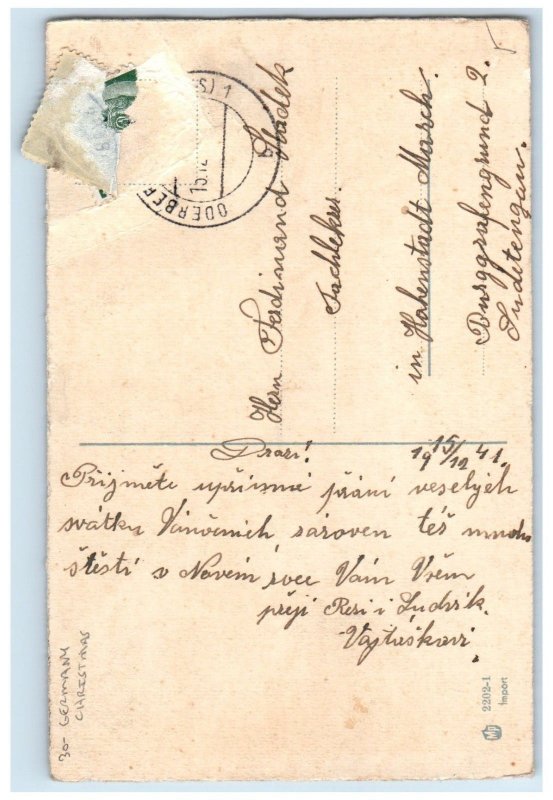 ODERBERG
15.12
S) 1
b
Herrn Ferdinand Sladek
in Hohenstadt March.
Burggrafengrund 2.
Suditengau.
Drazí!
19 15/12 41.
Přijměte upřímná přání veselých
svátku Vánočních zároven též mnoho
štěstí v Novém roce Vám Všem
přejí Resi i Ludvik
Vajtáškovi.
30- GERMANY
CHRISTMAS
2202-1
Import